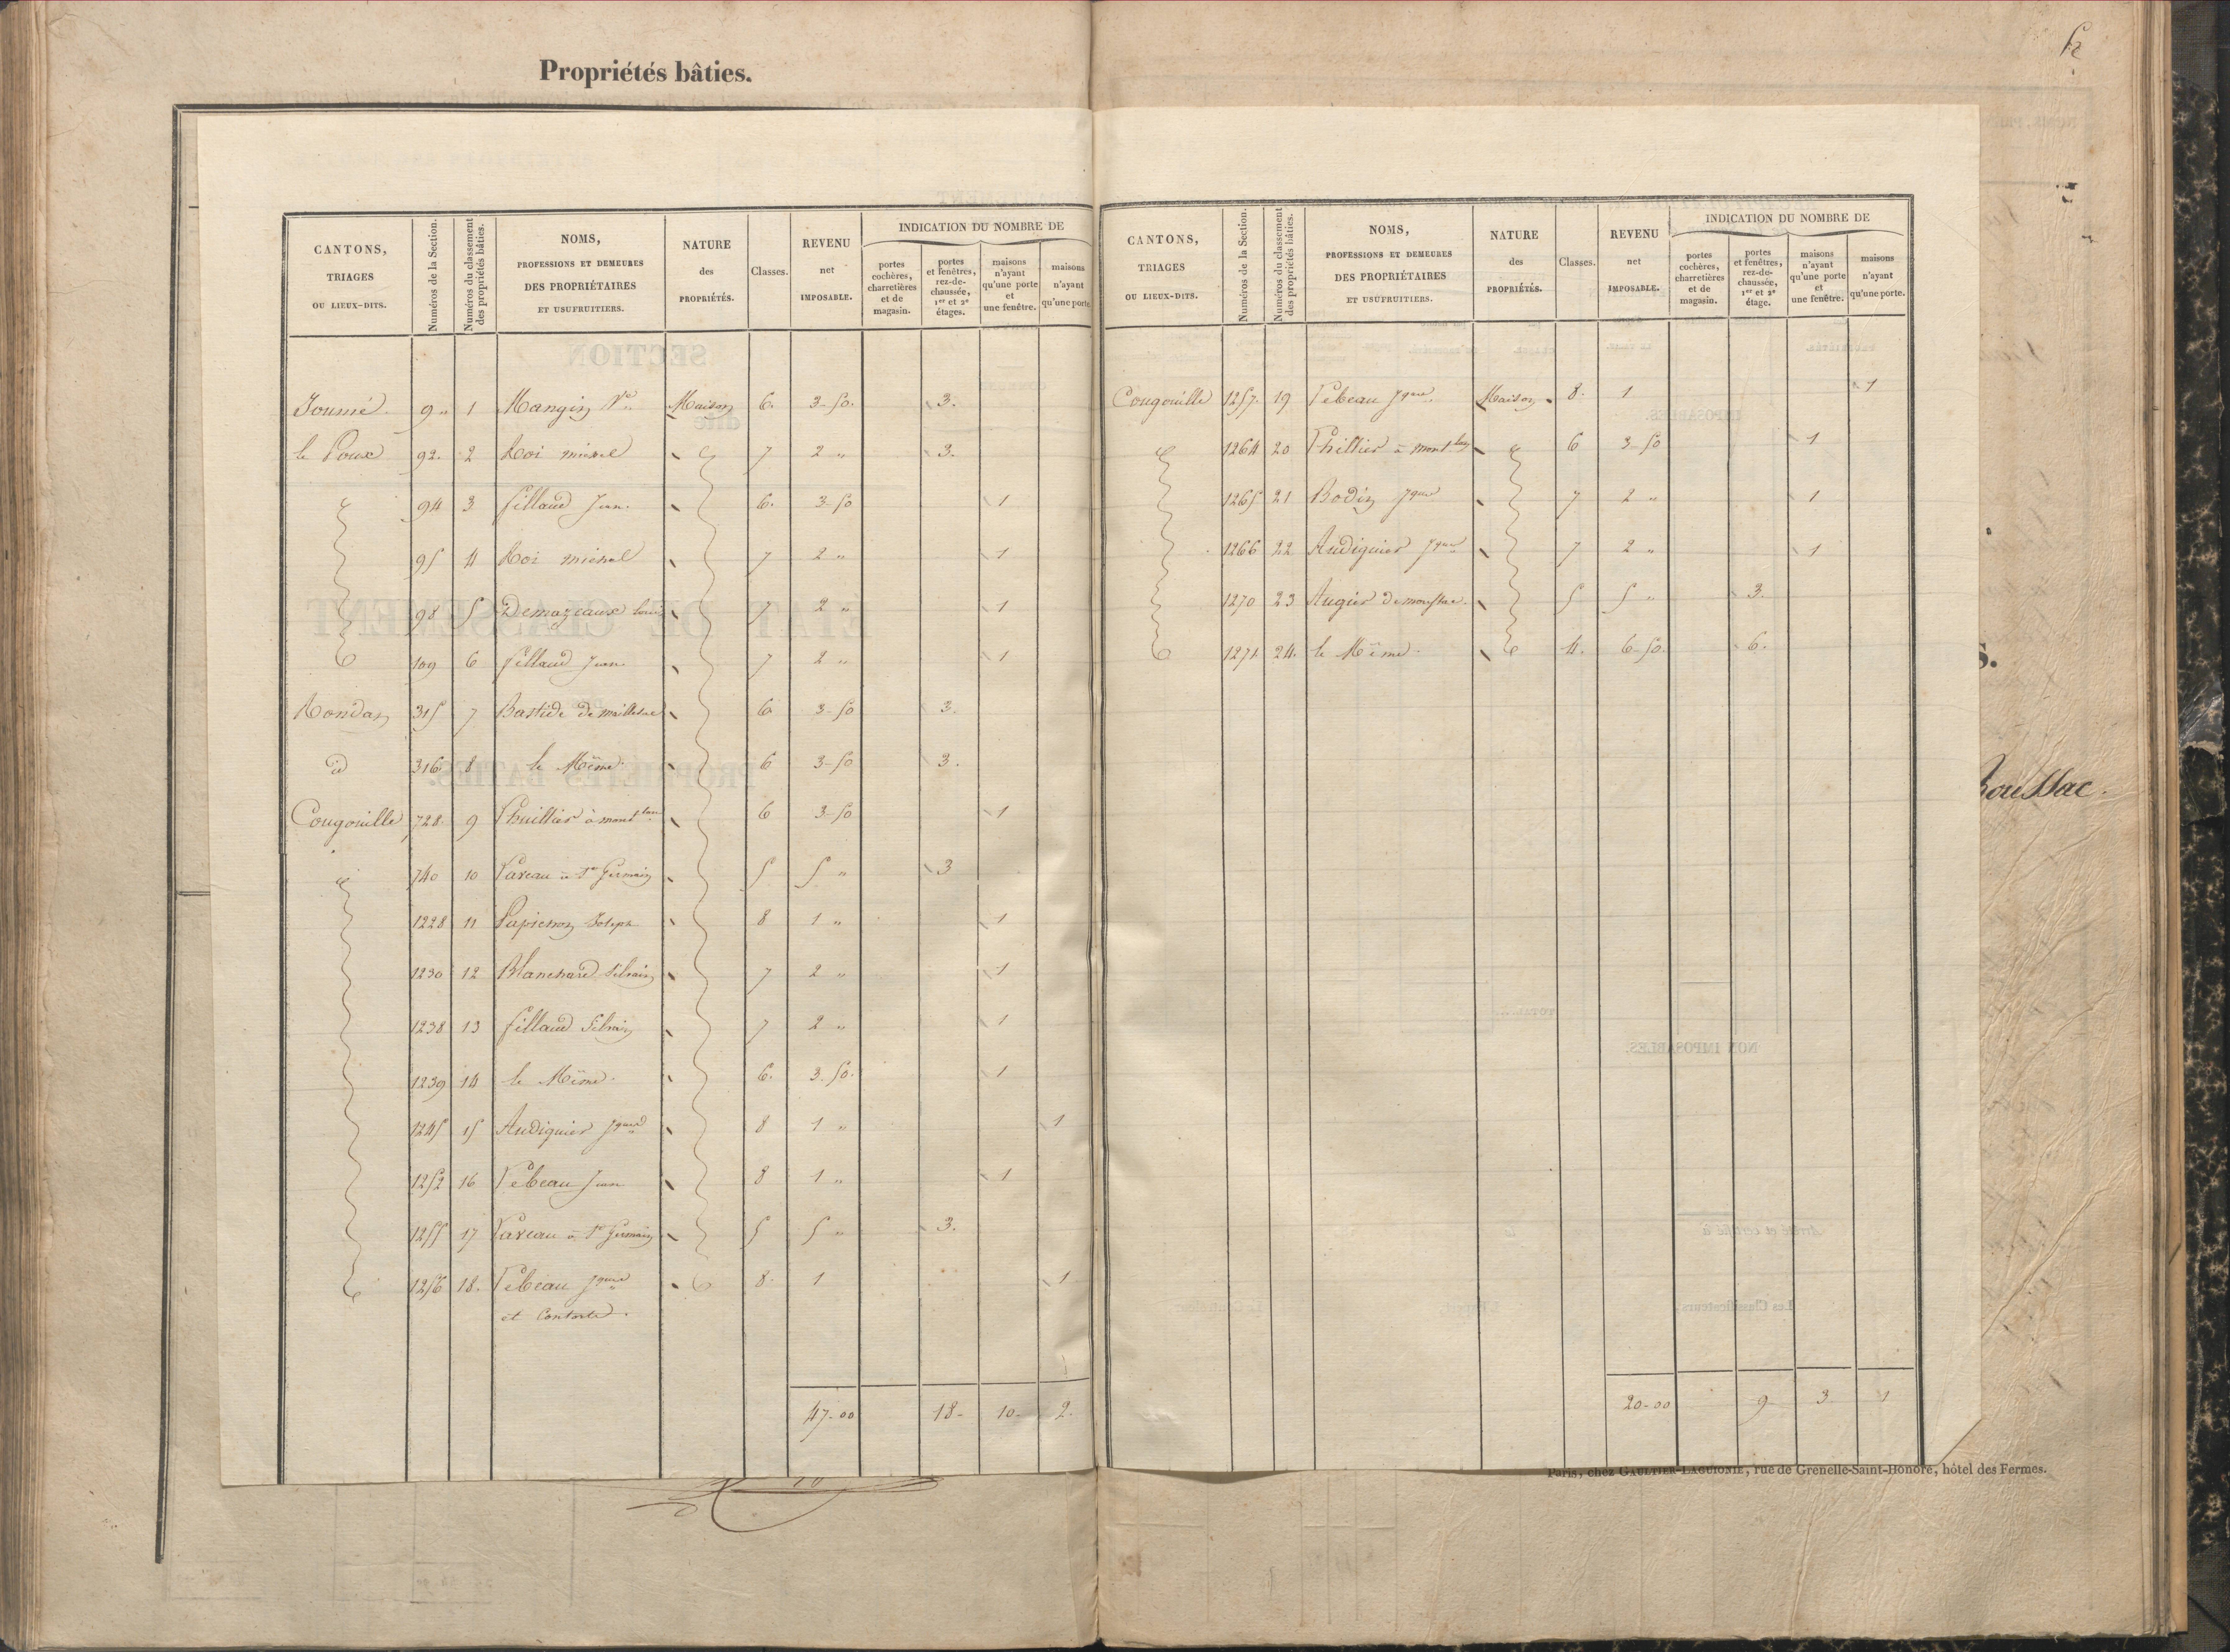 Propriétés bâties.
52
CANTONS, TRIAGES OU LIEUX-DITS. Numéros de la Section. Numéros du classement des propriétés bâties. NOMS, PROFESSIONS ET DEMEURES DES PROPRIÉTAIRES ET USUFRUITIERS. NATURE des PROPRIÉTÉS. Classes. REVENU net IMPOSABLE. INDICATION DU NOMBRE DE portes cochères, charretières et de magasin. portes et fenêtres, rez-de-chaussée, 1er et 2e étages. maisons n'ayant qu'une porte et une fenêtre. maisons n'ayant qu'une porte.
9 „ 1 Mangin Ve Maison 6. 3-50. 3.
le Poux 92. 2 Roi michel 7 2 „ 3.
94 3 fillaud Jean. 6. 3-50 1
95 4 Roi michel 7 2 „ 1
98 5 Demazeaux louis 7 2 „ 1
109 6 fillaud Jean. 7 2 „ 1
Rondan 315 7 Bastide de 6 3-50 3.
id 316 8 le Même. 6 3-50 3.
Cougouille 728. 9 Thuillier à 6 3-50 1
740 10 Pareau à St Germain 5 5 „ 3
1228 11 Joseph 8 1 „ 1
1230 12 Blanchard Silvain 7 2 „ 1
1238 13 fillaud Silvain 7 2 „ 1
1239 14 le Même. 6. 3.50. 1
1245 15 Audiguier Jques 8 1 „ 1
1252 16 Tébeau Jean 8 1 „ 1
1255 17 Pareau à St Germain 5 5 „ 3.
1256 18. Tébeau Jques 8. 1 1
et
47-00 18- 10- 2.
CANTONS, TRIAGES OU LIEUX-DITS. Numéros de la Section. Numéros du classement des propriétés bâties. NOMS, PROFESSIONS ET DEMEURES DES PROPRIÉTAIRES ET USUFRUITIERS. NATURE des PROPRIÉTÉS. Classes. REVENU net IMPOSABLE. INDICATION DU NOMBRE DE portes cochères, charretières et de magasin. portes et fenêtres, rez-de-chaussée, 1er et 2e étage. maisons n'ayant qu'une porte et une fenêtre. maisons n'ayant qu'une porte.
Cougouille 1257. 19 Tébeau Jques. Maison 8. 1 1
1264 20 Thillier à 6 3-50 1
1265 21 Bodin Jques 7 2 „ 1
1266 22 Audiguier Jques 7 2 „ 1
1270 23 Augier 5 5 „ 3.
1271. 24. le Même. 4. 6-50. 6.
20-00 9 3 1
Boussac.
Paris, chez GAULTIER-LAGUIONIE, rue de Grenelle-Saint-Honoré, hôtel des Fermes.